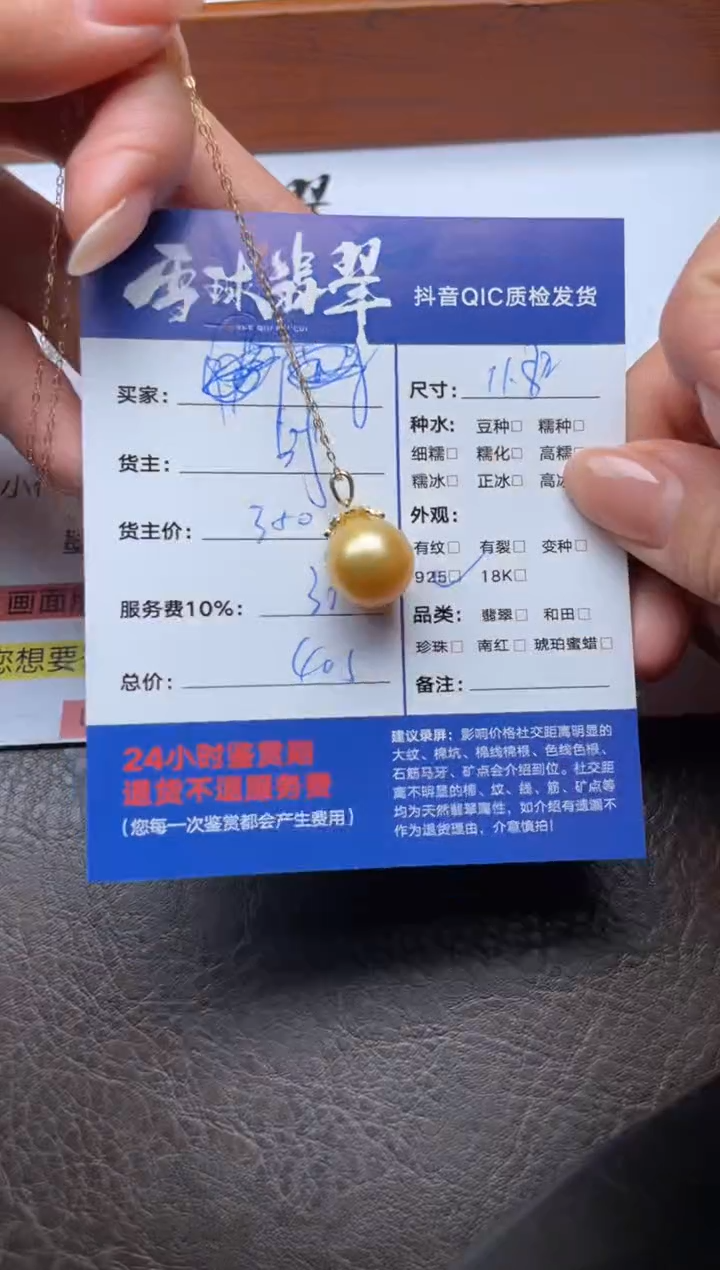 雪球翡翠
抖音QIC质检发货
买家:
货主:
货主价: 380
服务费10%:
总价:
尺寸: 11.82
种水: 豆种□ 糯种□
细糯□ 糯化□ 高糯
糯冰□ 正冰□ 高冰
外观:
有纹□ 有裂□ 变种□
925□ 18K□
品类: 翡翠□ 和田□
珍珠□ 南红□ 琥珀蜜蜡□
备注:
24小时鉴赏期
退货不退服务费
(您每一次鉴赏都会产生费用)
建议录屏: 影响价格社交距离明显的
大纹、棉坑、棉线棉根、色线色根、
石筋马牙、矿点会介绍到位。社交距
离不明显的棉、纹、线、筋、矿点等
均为天然翡翠属性, 如介绍有遗漏不
作为退货理由, 介意慎拍!
画面
您想要